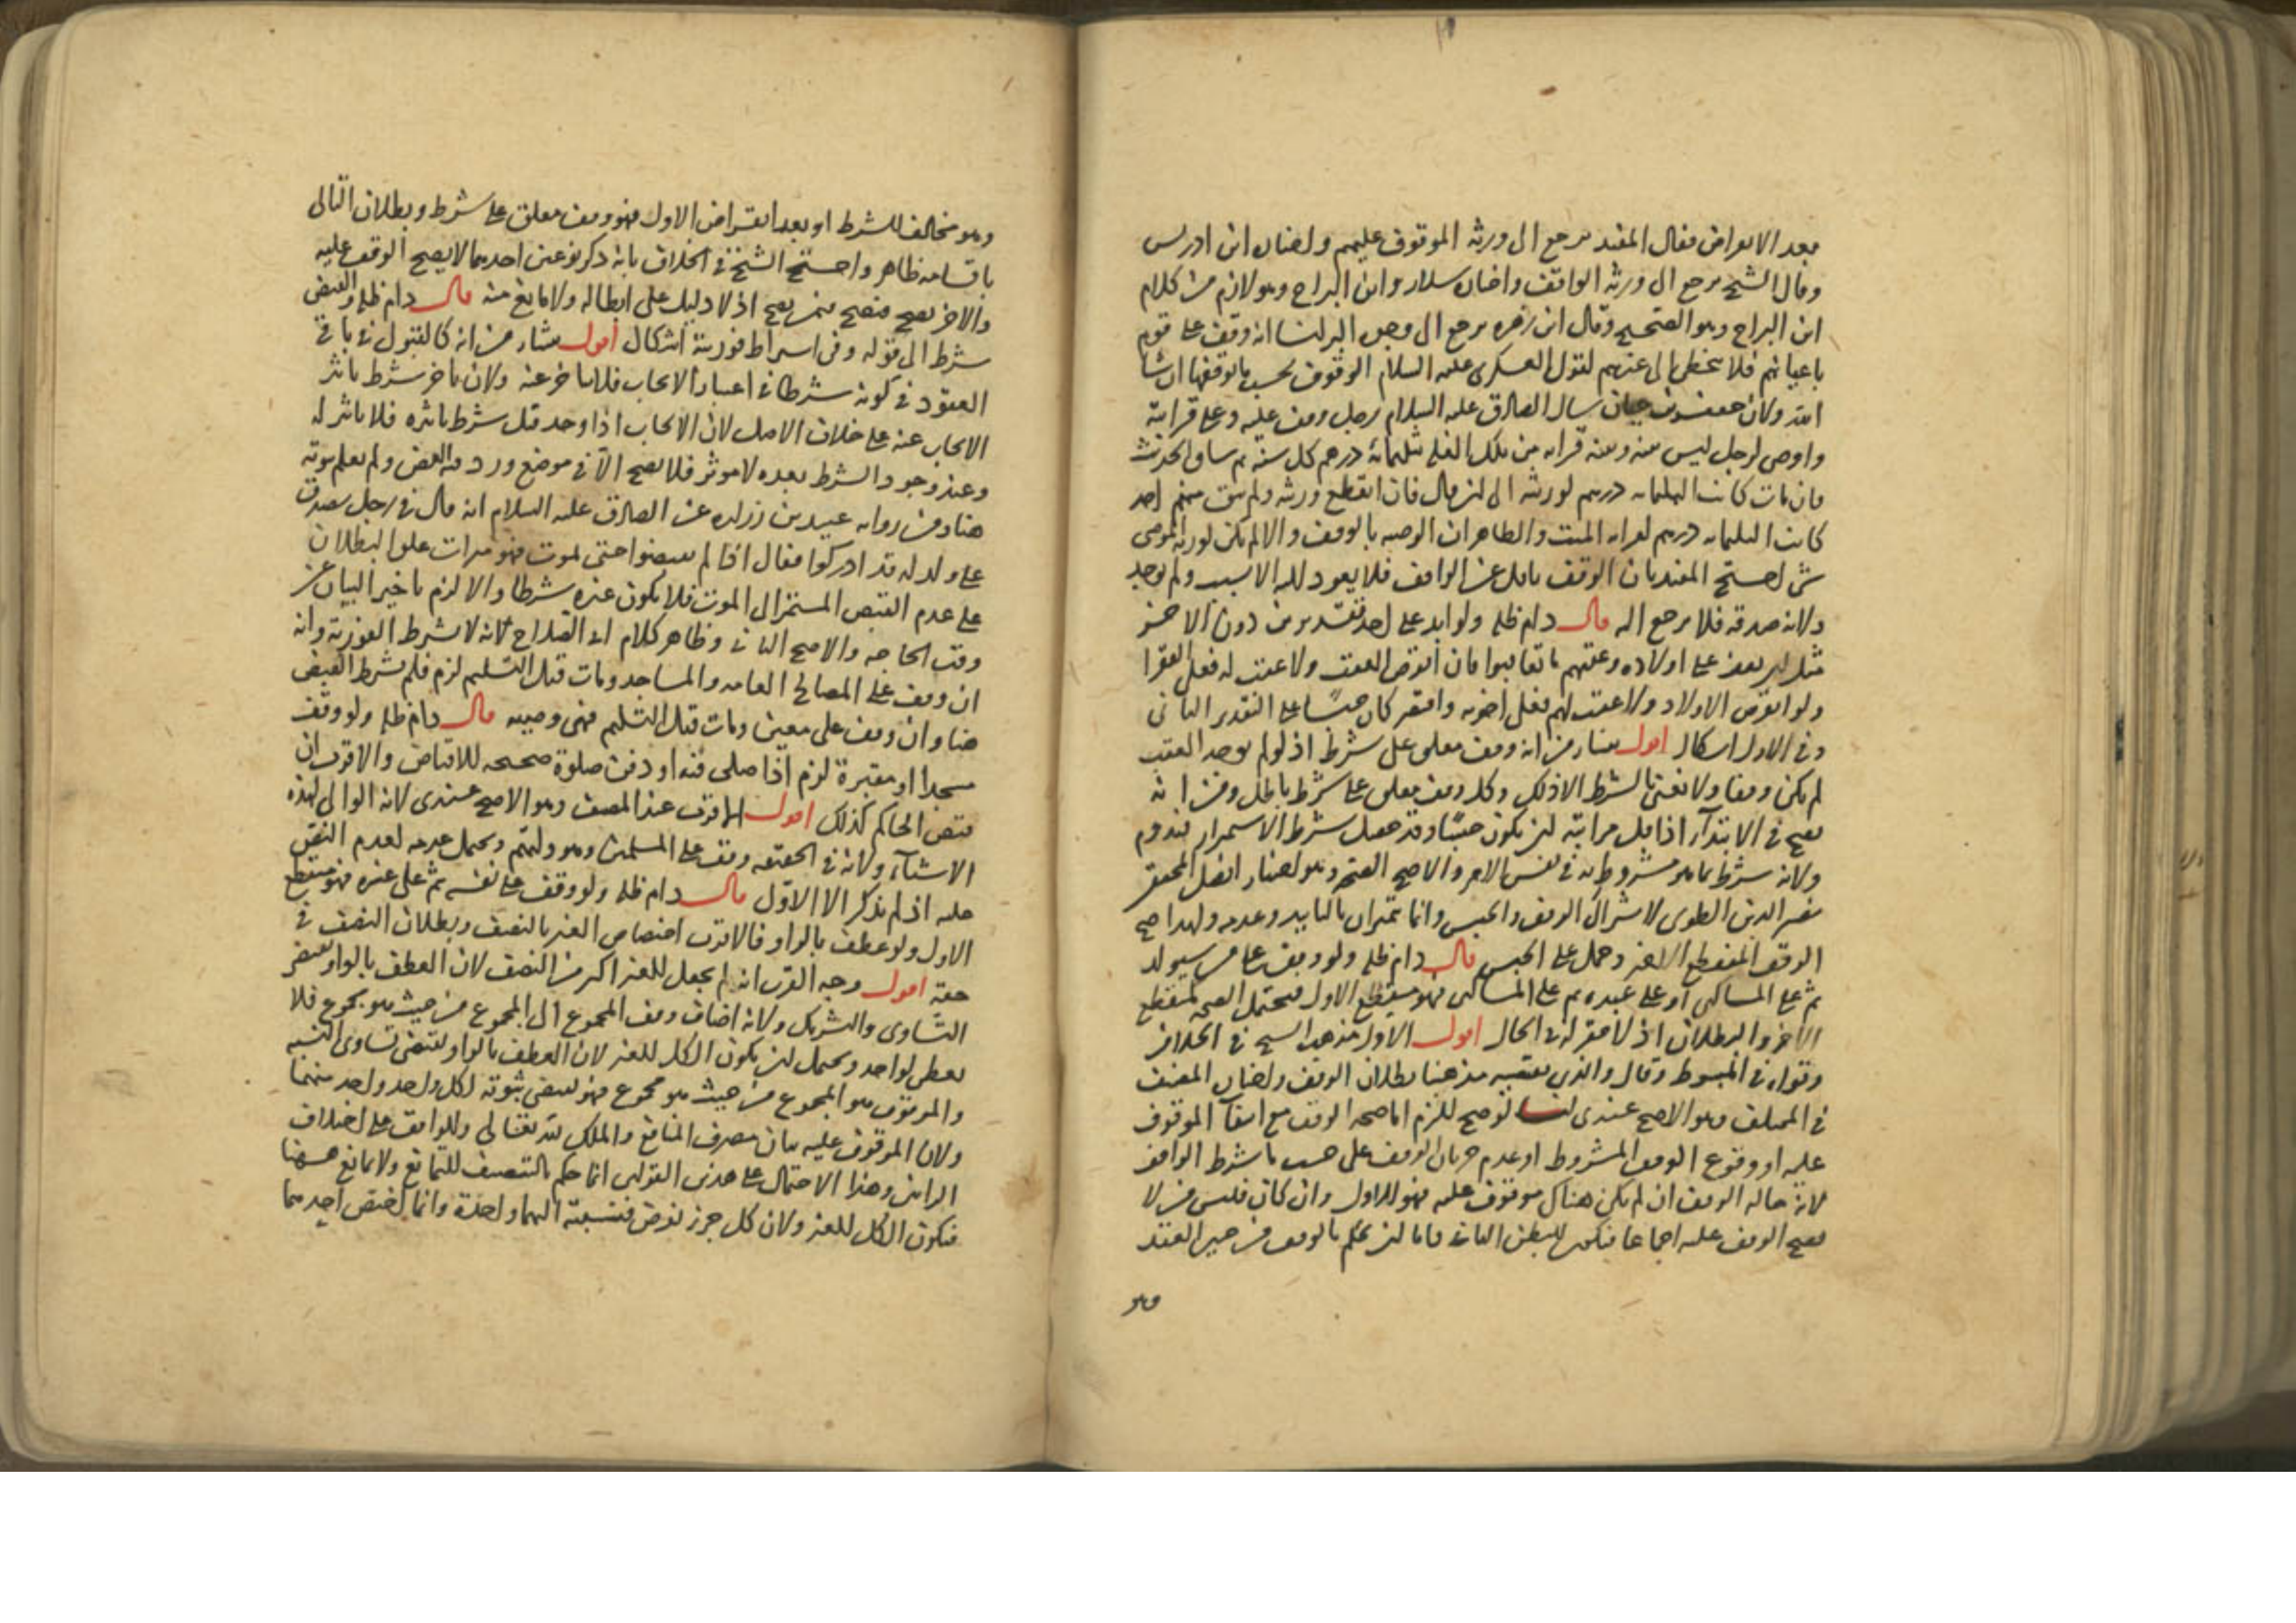 بعد الانقراض فقال المفيد يرجع الى ورثة الموقوف عليهم واختاره ابن ادريس
وقال الشيخ يرجع الى ورثة الواقف واختاره سلار وابن البراج وهو لازم من كلام
ابن البراج وهو الصحيح وقال ابن زهره يرجع الى وجوه البر لنا انه وقف على قوم
باعيانهم فلا يتخطى الى غيرهم لقول العسكرى عليه السلام الوقوف بحسب ما يوقفها ان شا
الله ولان جعفر بن حيان سال الصادق عليه السلام رجل وقف عليه وعلى قرابة
واوصى لرجل ليس منه وبينه قرابه من تلك الغله بثلثمائة درهم كل سنة ثم ساق الحديث
فان مات كانت الثلثمايه درهم لورثته الى ان قال فان انقطع ورثه ولم يبق منهم احد
كانت الثلثمايه درهم لقرابه الميت والظاهر ان الوصيه بالوقف والا لم يكن لورثة الموصى
شى احتج المفيد بان الوقف ناقل عن الواقف فلا يعود اليه الا بسبب ولم يوجد
ولانه صدقه فلا يرجع اليه قال دام ظله ولو ابد على احد تقديرين دون الاخر
مثل ان يقف على اولاده وعقبهم ما تعاقبوا فان انقرض العقب ولا عقب له فعلى الفقرا
ولو انقرض الاولاد ولا عقب لهم فعلى اخوته واقتصر كان حبسًا على التقدير الثانى
وفى الاول اشكال اقول ينشا من انه وقف معلق على شرط اذ لو لم يوجد العقب
لم يكن وقفا ولا نعنى بالشرط الا ذلك وكل وقف يعلق على شرط باطل ومن انه
يصح فى الابتدآء اذ اقل مراتبه ان يكون حبسًا وقد حصل شرط الاستمرار فيدوم
ولانه شرط بما هو مشروط به فى نفس الامر والاصح الصحة وهو اختيار افضل المحققين
نصير الدين الطوسى لاشتراك الوقف والحبس وانما يتميزان بالتابيد وعدمه ولهذا صح
الوقف المنقطع الاخر وحمل على الحبس قال دام ظله ولو وقف على من سيولد
ثم على المساكين او على عبده ثم على المساكين فهو منقطع الاول فيحتمل الصحة كمنقطع
الاخر والبطلان اذ لا مقر له فى الحال اقول الاول مذهب الشيخ فى الخلاف
وقواه فى المبسوط وقال والذى يقتضيه مذهبنا بطلان الوقف واختاره المصنف
فى المختلف وهو الاصح عندى لنا لو صح للزم اما صحة الوقف مع انتفآء الموقوف
عليه او وقوع الوقف المشروط او عدم جريان الوقف على حسب ما شرط الواقف
لانه حالة الوقف ان لم يكن هناك موقوف عليه فهو الاول وان كان فليس من لا
يصح الوقف عليه اجماعا فيكون للبطن الثانى فاما ان يحكم بالوقف من حين العقد
وهو
وهو مخالف للشرط او بعد انقراض الاول فهو وقف معلق على شرط وبطلان التالى
باقسامه ظاهر واحتج الشيخ فى الخلاف بانه ذكر نوعين احدهما لا يصح الوقف عليه
والاخر يصح فيصح فيمن يصح اذ لا دليل على ابطاله ولا مانع منه قال دام ظله والقبض
شرط الى قوله وفى اشتراط فوريته اشكال اقول ينشا من انه كالقبول فى باقى
العقود فى كونه شرطا فى اعتبار الايجاب فلا يتاخر عنه ولان تاخر شرط تاثير
الايجاب عنه على خلاف الاصل لان الايجاب اذا وجد قبل شرط تاثيره فلا تاثير له
وعند وجود الشرط بعده لا موثر فلا يصح الا فى موضع ورد فيه النص ولم يعلم ثبوته
هنا ومن رواية عبيد بن زراره عن الصادق عليه السلام انه قال فى رجل تصدق
على ولد له قد ادركوا فقال اذا لم يقبضوا حتى يموت فهو ميراث علق البطلان
على عدم القبض المستمر الى الموت فلا يكون غيره شرطا والا لزم تاخير البيان عن
وقت الحاجه والاصح الثانى وظاهر كلام ابى الصلاح لانه لا يشترط الفورية وانه
ان وقف على المصالح العامه والمساجد ومات قبل التسليم لزم فلم يشترط القبض
هنا وان وقف على معين ومات قبل التسليم فهى وصيه قال دام ظله ولو وقف
مسجدا او مقبرة لزم اذا صلى فيه او دفن صلوة صحيحه للاقباض والاقرب ان
قبض الحاكم كذلك اقول القرب عند المصنف وهو الاصح عندى لانه الوالى لهذه
الاشيآء ولانه فى الحقيقه وقف على المسلمين وهو وليهم ويحتمل عدمه لعدم النص
عليه اذ لم يذكر الا الاول قال دام ظله ولو وقف على نفسه ثم على غيره فهو منقطع
الاول ولو عطف بالواو فالاقرب اختصاص الغير بالنصف وبطلان النصف فى
حقه اقول وجه القرب انه لم يجعل للغير اكثر من النصف لان العطف بالواو يقتضى
التساوى والتشريك ولانه اضاف وقف المجموع الى المجموع من حيث هو مجموع فلا
يعطى لواحد ويحتمل ان يكون الكل للغير لان العطف بالواو يقتضى تساوى النسبه
والموقوف هو المجموع من حيث هو مجموع فهو يقتضى ثبوته لكل واحد واحد منهما
ولان الموقوف عليه بيان مصرف المنافع والملك لله تعالى وللواقف على اختلاف
الرايين وهذا الاحتمال على هذين القولين انما حكم بالتنصيف للتمانع ولا تمانع هيهنا
فيكون الكل للغير ولان كل جزء يفرض فنسبته اليهما واحدة وانما يختص احدهما